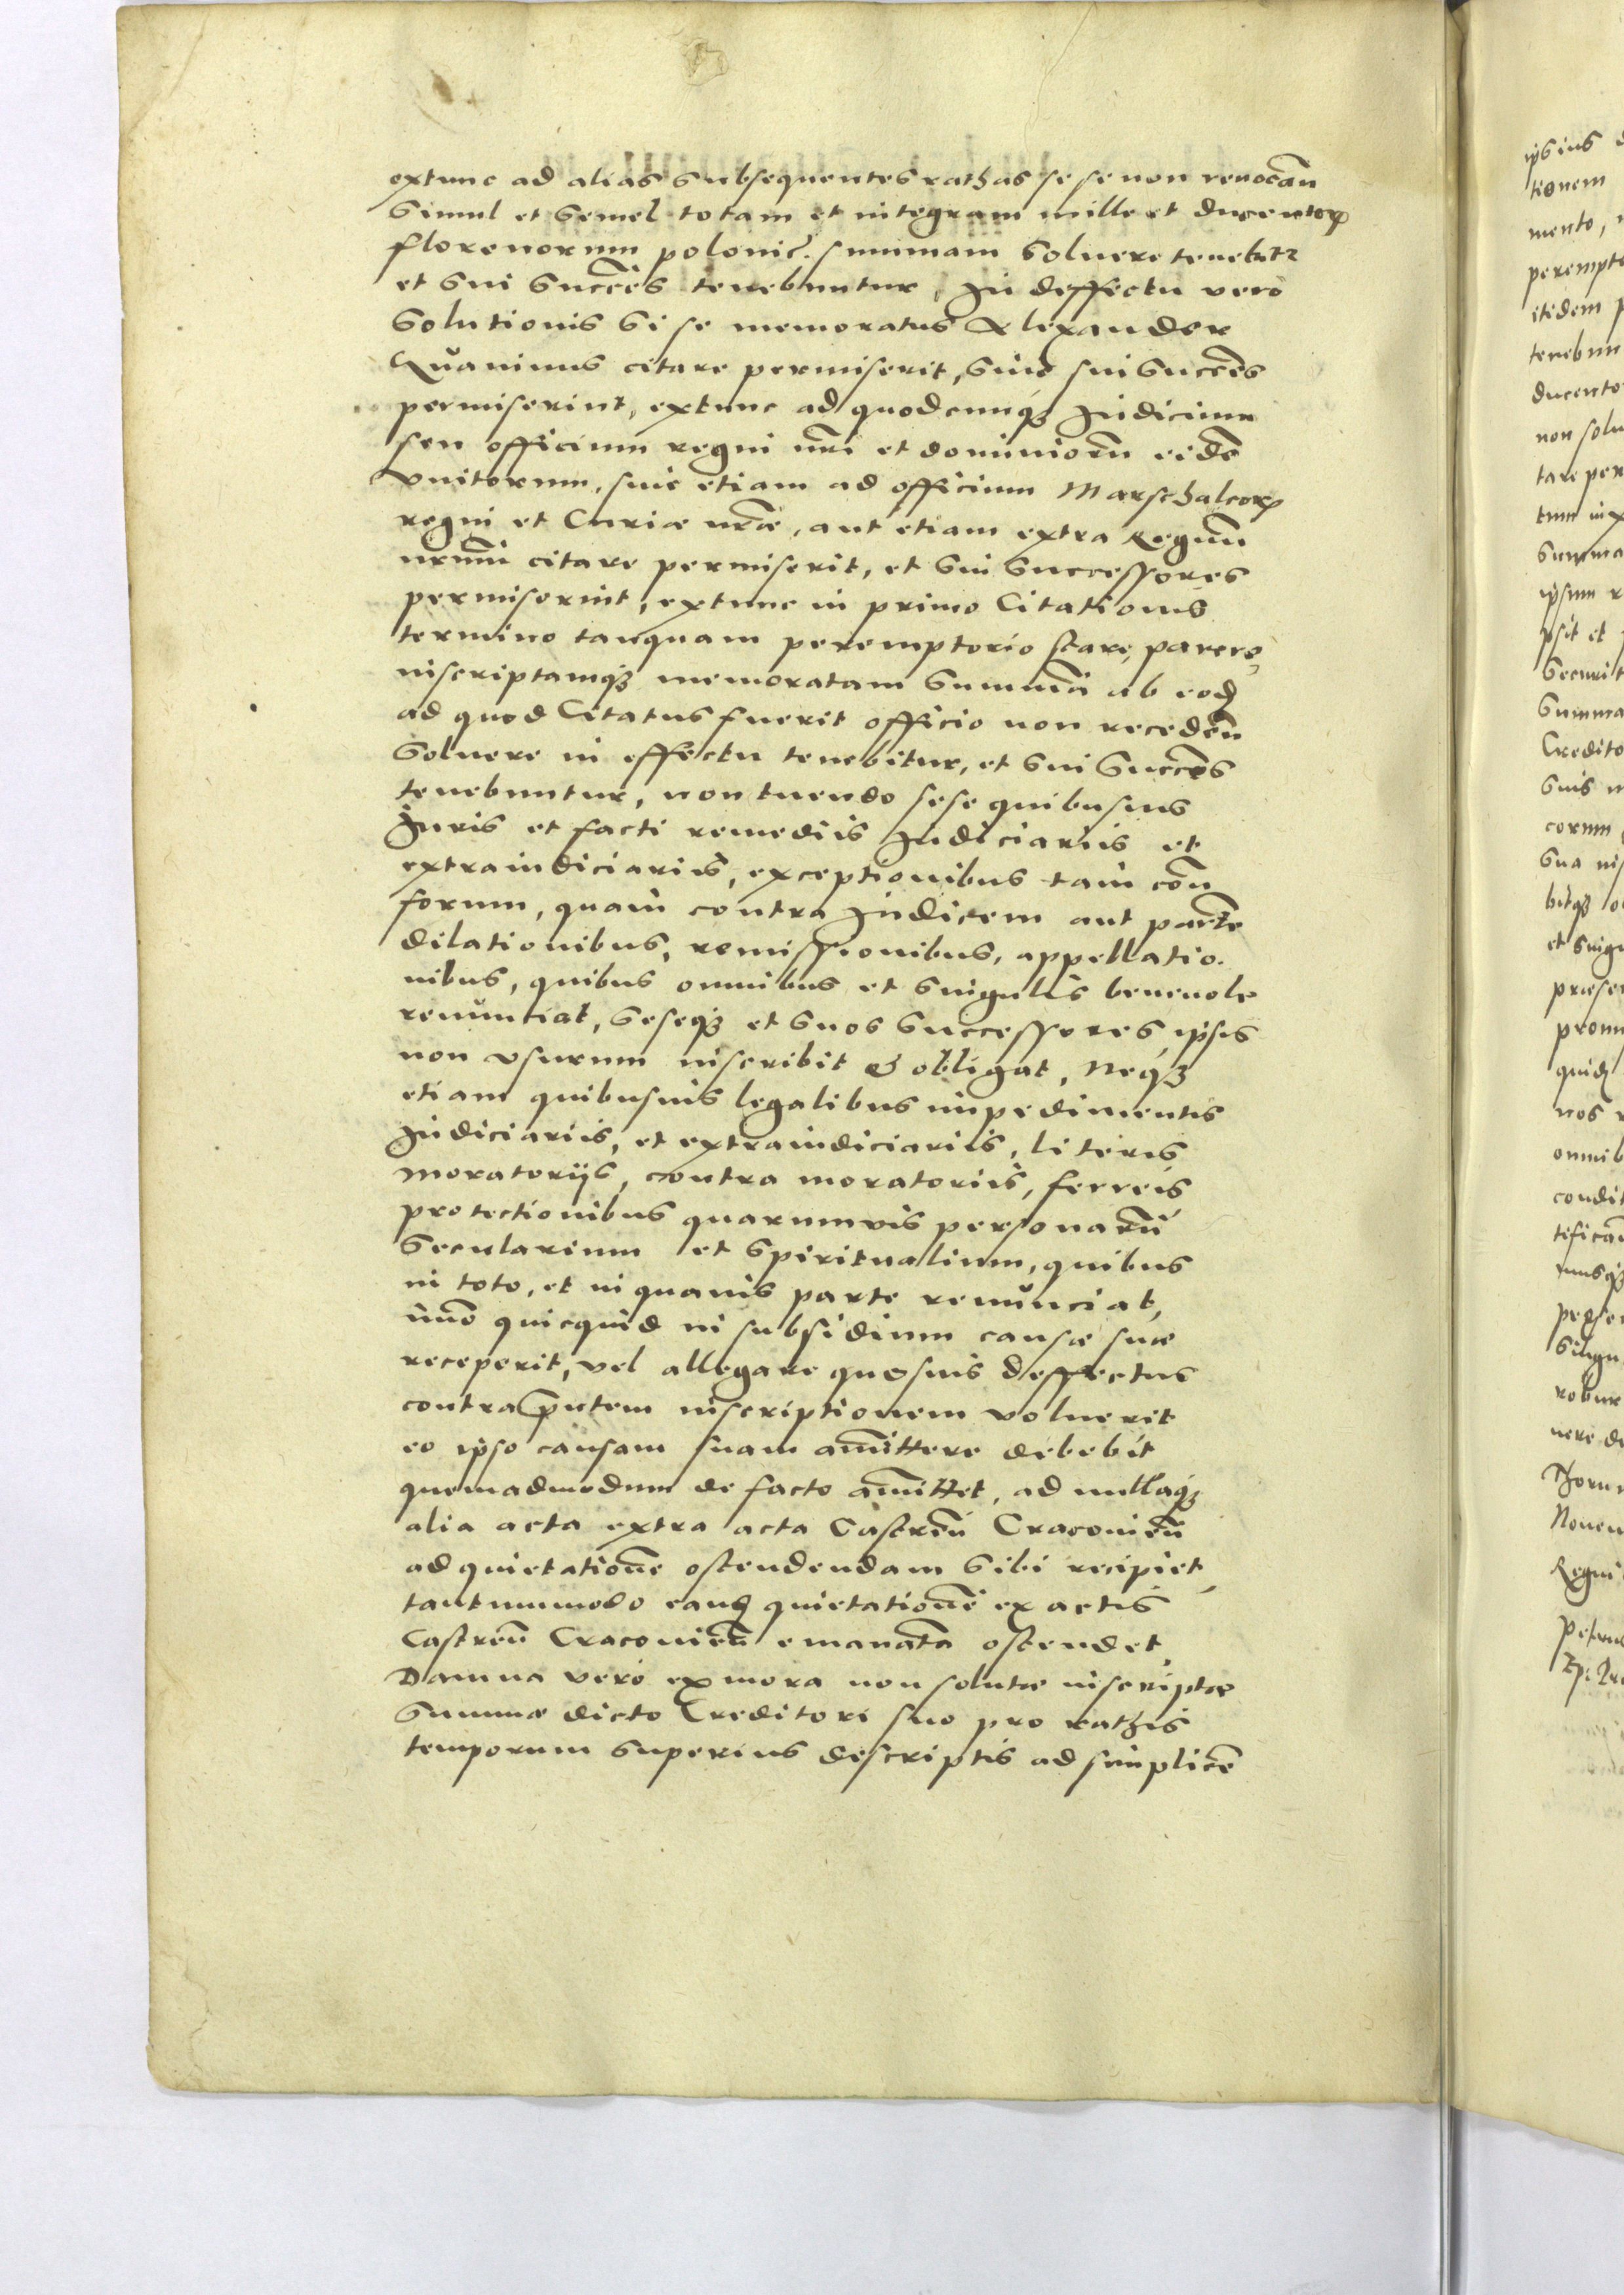 extunc ad alias subsequentes rathas sese non reuocan̄
simul et semel totam et integram mille et ducentoꝝ
florenorum polonic̄. summam soluere tenebitᷣ
et sui succēs tenebuntur, In deffectu vero
solutionis si se memoratus Alexander
citare permiserit, siue sui succēs
permiserint, extunc ad quodcunqꝫ Iudicium
seu officium regni nr̄i et dominiorū eidē
vnitorum, siue etiam ad officium Marschalcoꝝ
regni et Curiæ nr̄æ, aut etiam extra Regnū
nr̄um citare permiserit, et sui successores
permiserint, extunc in primo Citationis
termino tanquam peremptorio stare, parere,
inscriptamqꝫ memoratam summā ab eod̄
ad quod Citatus fuerit officio non recedēn
soluere in effectu tenebitur, et sui succēs
tenebuntur, non tuendo sese quibusuis
Iuris et facti remediis Iudiciariis et
extraiudiciariis, exceptionibus tam con̄
forum, quam contra Iudicem aut partē
dilationibus, remissionibus, appellatio.
nibus, quibus omnibus et singulis beneuole
renunciat, seseqꝫ et suos successores, ipsis
non vsurum inscribit & obligat, Neqꝫ
etiam quibusuis legalibus impedimentis
Iudiciariis, et extraiudiciariis, literis
moratorijs, contra moratoriis, ferreis
protectionibus quarumvis personarū
secularium et spiritualium, quibus
in toto, et in quauis parte renunciat,
imō quicquid in subsidium causæ suæ
receperit, vel allegare quosuis deffectus
contra pn̄tem inscriptionem voluerit
eo ipso causam suam am̄ittere debebit
quemadmodum de facto am̄ittet, ad nullaqꝫ
alia acta extra acta Castren̄ Cracouien̄
ad quietationē ostendendam sibi recipiet
tantummodo eand̄ quietationē ex actis
Castren̄ Cracouien̄ emanatā ostendet,
Damna vero ex mora non solutæ inscriptæ
summæ dicto Creditori suo pro rathis
temporum superius descriptis ad simplicē